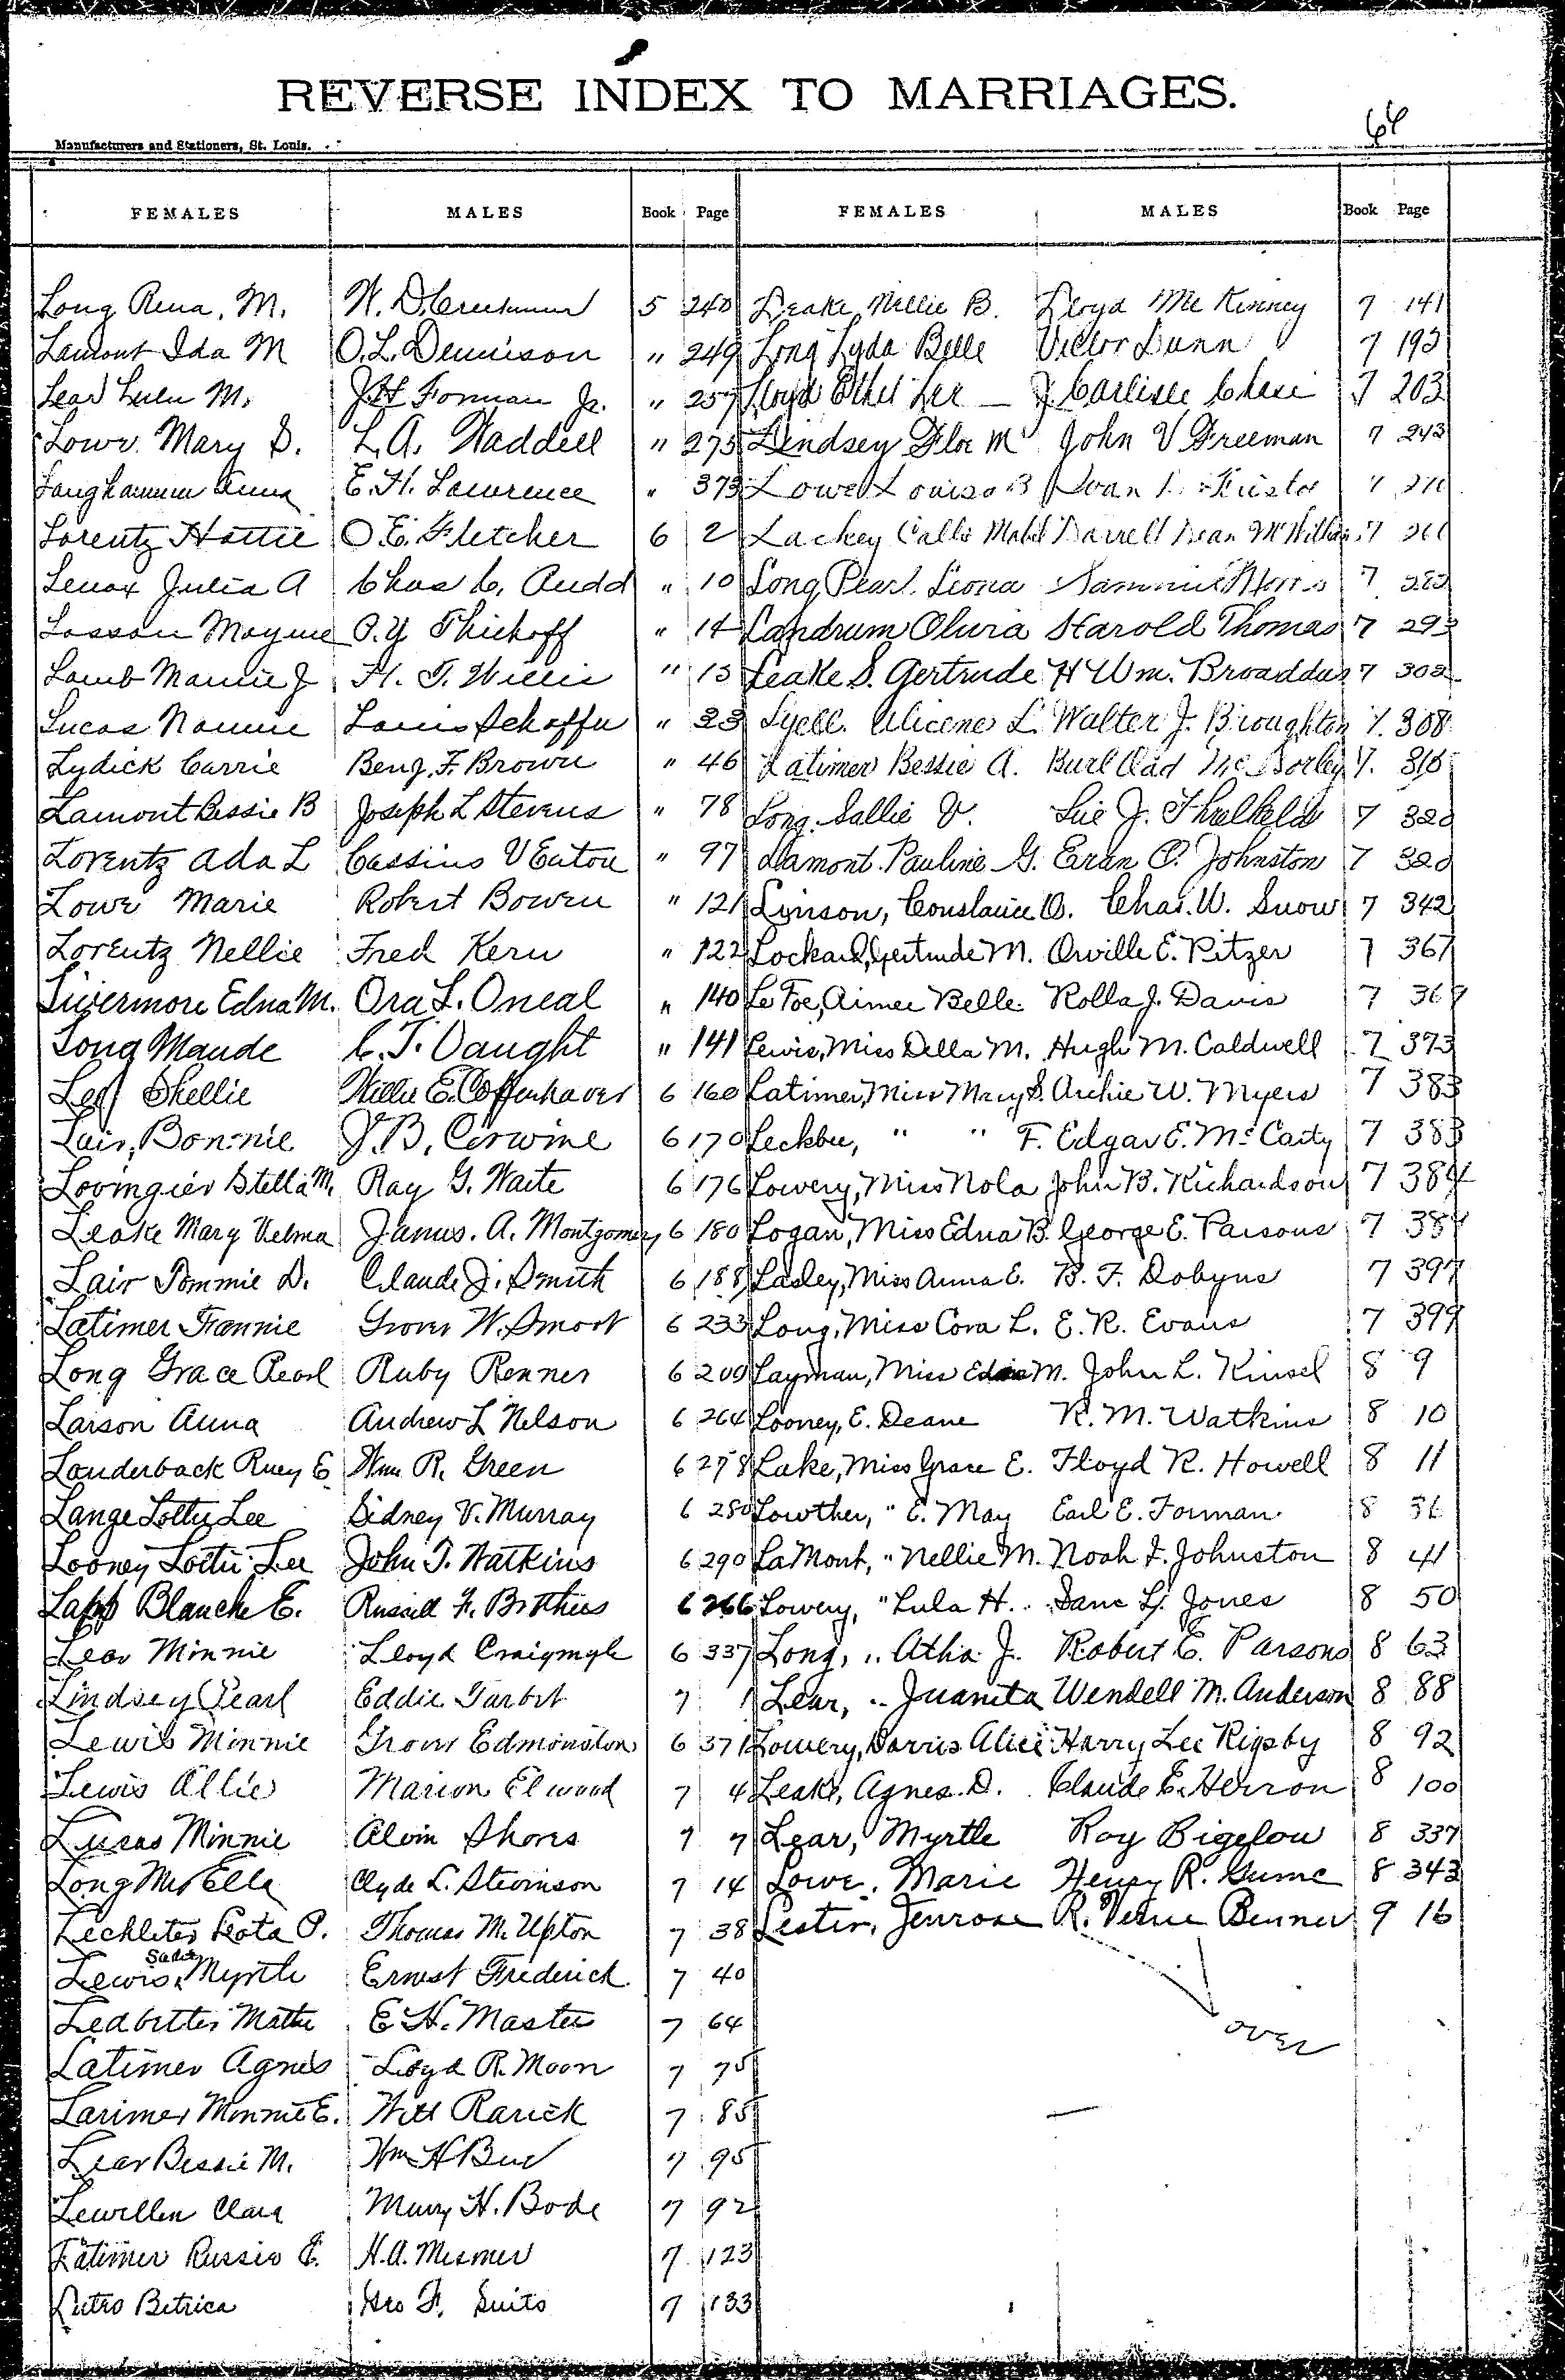 REVERSE INDEX TO MARRIAGES.
64
Manufacturers and Stationers, St. Louis.
FEMALES MALES Book Page FEMALES MALES Book Page
Long Rena, M. W. D. 5 240
Lamont Ida M O. L. Dennison " 249
Lear Lulu M. J H Forman Jr. " 257
Lowe Mary S. L. A. Waddell " 275
Anna E. H. Lawrence " 373
Lorentz Hattie O. E. Fletcher 6 2
Lenox Julia A Chas C. Audd " 10
Lasson Mayme O. Y Thiehoff " 14
Lamb Mamie J H. T. Willis " 15
Lucas Nannie Louis " 23
Lydick Carrie Benj. F. Brown " 46
Lamont Bessie B Joseph L Stevens " 78
Lorentz Ada L Cassius V Eaton " 97
Lowe Marie Robert Bowen " 121
Lorentz Nellie Fred Kern " 122
Livermore Edna M. Ora L. Oneal " 140
Long Maude C. T. Vaught " 141
Shellie Willie E. Coffenhaver 6 160
Lair, Bonnie J. B. Corwine 6 170
Lovingier Stella M. Ray G. Waite 6 176
Leake Mary Velma James. A. Montgomery 6 180
Lair Tommie D. Claude J. Smith 6 188
Latimer Fannie Grover W. Smoot 6 233
Long Grace Pearl Ruby Renner 6 209
Larson Anna Andrew L Nelson 6 264
Louderback Ruey E Wm R. Green 6 278
Lange Lotty Lee Sidney V. Murray 6 280
Looney Lottie Lee John T. Watkins 6 290
Lapp Blanche E. Russell F. 6 266
Lear Minnie Lloyd Craigmyle 6 337
Lindsey Pearl Eddie Tarbet 7 1
Lewis Minnie Grover Edmonston 6 371
Lewis Allie Marion Elwood 7 4
Lucas Minnie Alvin Shores 7 7
Long Mrs Ella Clyde L. Stevinson 7 14
Lechleter Leota P. Thomas M. Upton 7 38
Sadie
Lewis, Myrtle Ernest Frederick 7 40
Ledbetter Mattie E H. Masters 7 64
Latimer Agnes Lloyd R. Moon 7 75
Larimer Minnie E. Will Rarick 7 85
Lear Bessie M. Wm H 7 95
Lewellen Clara Murry H. Bode 7 92
Latimer Russie E. H. A. Mesmer 7 123
Betrica Geo F. Suits 7 133
Leake, Nellie B. Lloyd McKinney 7 141
Long Lyda Belle Victor Dunn 7 193
Lloyd Ethel Lee — J. Carlisle Chase 7 203
Lindsey Flor M John V Freeman 7 243
Lowe Louisa B 7
Lackey Callie Mabel Darrell Dean McWilliams 7
Long Pearl Leona Sammie 7 282
Landrum Olivia Harold Thomas 7 293
Leake S. Gertrude H Wm. Broaddus 7 302
Lyell. Alicene L. Walter J. Broughton 7. 308
Latimer Bessie A. Burl Clad McSorley 7. 315
Long. Sallie V. Sue J. Threlkeld 7 320
Lamont. Pauline G. Eran O. Johnston 7 320
Linson, Constance O. Chas. W. Snow 7 342
Lockard, Gertrude M. Orville E. Pitzer 7 367
Le Foe, Aimee Belle. Rolla J. Davis 7 369
Lewis, Miss Della M. Hugh M. Caldwell 7 373
Latimer, Miss Mary S. Archie W. Myers 7 383
Leckbee, " " F. Edgar E. McCarty 7 383
Lowery, Miss Nola John B. Richardson 7 384
Logan, Miss Edna B. George E. Parsons 7 384
Lasley, Miss Anna E. B. F. Dobyns 7 397
Long, Miss Cora L. E. R. Evans 7 399
Layman, Miss M. John L. Kinsel 8 9
Looney, E. Deane R. M. Watkins 8 10
Lake, Miss Grace E. Floyd R. Howell 8 11
Lowther, " E. May Earl E. Forman 8 36
LaMont, " Nellie M. Noah F. Johnston 8 41
Lowery, " Lula H. Dane L. Jones 8 50
Long, " Atha J. Robert E. Parsons 8 63
Lear, " Juanita Wendell M. Anderson 8 88
Lowery, Dorris Alice Harry Lee Rigsby 8 92
Leake, Agnes. D. Claude E. Herron 8 100
Lear, Myrtle Roy Bigelow 8 337
Lowe. Marie Henry R. Gume 8 343
Lester, Jenrose R. Verne Benner 9 16
over